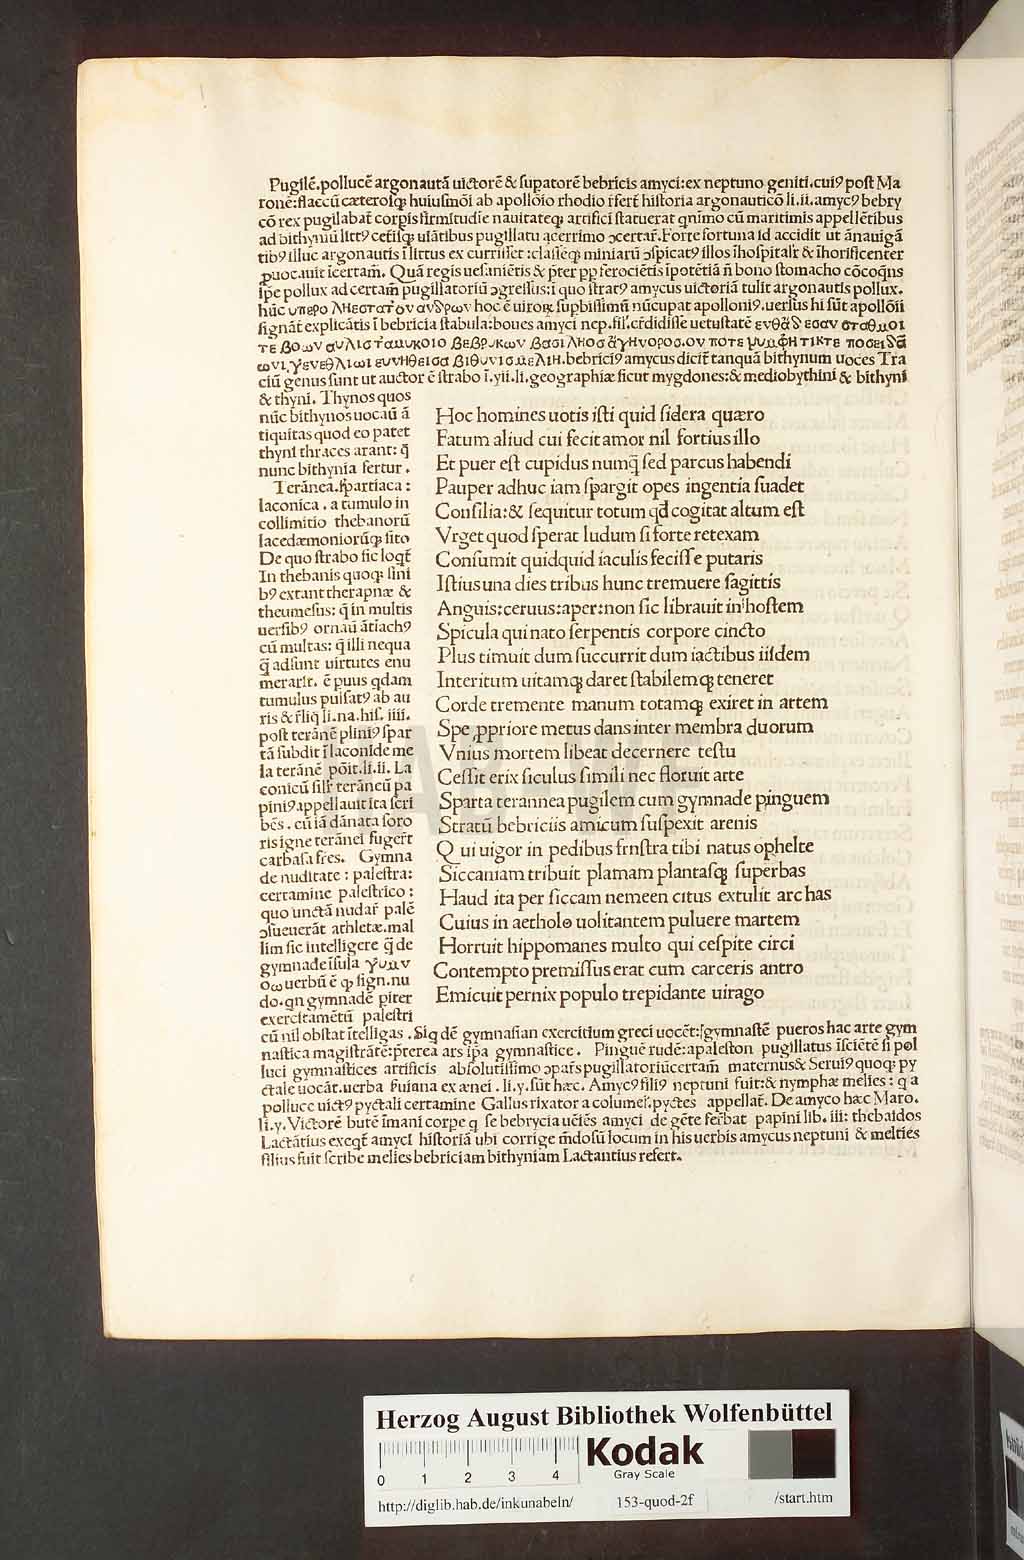 Pugilē.pollucē argonautā uictorē & supatorē bebricis amyci:ex neptuno geniti.cuiꝰ post Ma
ronē:flaccū cæterosq; huiusmōi ab apollōio rhodio r̄fert̄ historia argonauticō li.ii.amycꝰ bebry
cō rex pugilabat̄ corpis firmitudīe nauitateq; artifici statuerat qnīmo cū maritimis appellētibus
ad bithyniū litt⁹ cet̄isq; ulātibus pugillatu acerrimo ɔcertar̄.Forte fortuna id accidit ut ānauigā
tibꝰ illuc argonautis ī littus ex curriſſet :classēq; miniarū ɔspicatꝰ illos īhospitalr̄ & īhorificenter
puocauit īcertam̄. Quā regis uesaniētis & p̄ter pp ferociētis īpotētiā n̄ bono stomacho cōcoqns
ip̄e pollux ad certam̄ pugillatoriū ɔgressus:ī quo stratꝰ amycus uictoriā tulit argonautis pollux.
hūc υπερο ληεστατον ανδρων hoc ē uirorꝝ supbissimū nūcupat apolloniꝰ.uersus hi sūt apollōii
signāt explicātis ī bebricia stabula:boues amyci nep.fil'.cr̄didisse uetustatē ενθα δ εσαν σταθμοι
τε βοων αυλις τ αμυκοιο βεβρυκων βασι ληοσ αγηνορος.ον ποτε νυμφη τικτε ποσειδα
ωνι γενεθλιωι ευνηθεισα βιθυνισ μελιη.bebriciꝰ amycus dicit̄ tanquā bithynum uoces Tra
ciū genus sunt ut auctor ē strabo ī.yii.li.geographiæ sicut mygdones:& mediobythini & bithyni
& thyni. Thynos quos
nūc bithynos uocaū ā
tiquitas quod eo patet
thyni thraces arant: q̄
nunc bithynia fertur .
Terānea.spartiaca :
laconica . a tumulo in
collimitio thebanorū
lacedæmoniorūq; sito
De quo strabo sic loqt̄
In thebanis quoq; fini
bꝰ extant therapnæ &
theumesus: q̄ in multis
uersibꝰ ornaū ātiachꝰ
cū multas: q̄ illi nequa
q̄ adsunt uirtutes enu
merarit. ē puus qdam
tumulus pulsatꝰ ab au
ris & r̄liq li.na.his. iiii.
post terānē pliniꝰ spar
tā subdit ī laconide me
la terānē pōit.li.ii. La
conicū silr̄ terāneū pa
piniꝰ appellauit ita scri
bēs . cū iā dānata soro
ris igne terānei fuger̄t
carbasa fr̄es. Gymna
de nuditate : palestra:
certamine palestrico :
quo unctā nudar̄ palē
ɔsueuerāt athletæ.mal
lim sic intelligere q̄ de
gymnade īsula γυμν
οω uerbū ē qꝫ sign.nu
do.qn gymnadē piter
exercitamētū palestri
Hoc homines uotis isti quid sidera quæro
Fatum aliud cui fecit amor nil fortius illo
Et puer est cupidus numq̄ sed parcus habendi
Pauper adhuc iam spargit opes ingentia suadet
Consilia:& sequitur totum qd cogitat altum est
Vrget quod sperat ludum si forte retexam
Consumit quidquid iaculis fecisse putaris
Istius una dies tribus hunc tremuere sagittis
Anguis:ceruus:aper:non sic librauit in hostem
Spicula qui nato serpentis corpore cincto
Plus timuit dum succurrit dum iactibus iisdem
Interitum uitamq; daret stabilemq; teneret
Corde tremente manum totamq; exiret in artem
Spe ꝓpriore metus dans inter membra duorum
Vnius mortem libeat decernere testu
Cessit erix siculus simili nec floruit arte
Sparta terannea pugilem cum gymnade pinguem
Stratū bebriciis amicum suspexit arenis
Qui uigor in pedibus frnstra tibi natus ophelte
Siccaniam tribuit plamam plantasq; superbas
Haud ita per siccam nemeen citus extulit archas
Cuius in aetholo uolitantem puluere martem
Horruit hippomanes multo qui cespite circi
Contempto premissus erat cum carceris antro
Emicuit pernix populo trepidante uirago
cū nīl obstat ītelligas . Siq dē gymnasian exercitium greci uocēt:gymnastē pueros hac arte gym
nastica magistrātē:p̄terea ars ip̄a gymnastice. Pinguē rudē:apaleston pugillatus īsciētē si pol
luci gymnastices artificis absolutissimo ɔpar̄s pugillatoriūcertam̄ maternus& Seruiꝰ quoq; py
ctale uocāt.uerba s̄uiana ex ænei . li.y.sūt hæc. Amycꝰ filiꝰ neptuni fuit:& nymphæ melies : q a
polluce uictꝰ pyctali certamine Gallus rixator a columel'.pyctes appellat̄. De amyco hæc Maro.
li.y.Victorē butē īmani corpe q se bebrycia ueīēs amyci de gēte fer̄bat papini lib. iii: thebaidos
Lactātius exeqt̄ amyci historiā ubi corrige m̄dosū locum in his uerbis amycus neptuni & melties
filius fuit scribe melies bebriciam bithyniam Lactantius refert.
HAB-WF
Herzog August Bibliothek Wolfenbüttel
Kodak
Gray Scale
0 1 2 3 4
http://diglib.hab.de/inkunabeln/ 153-quod-2f /start.htm